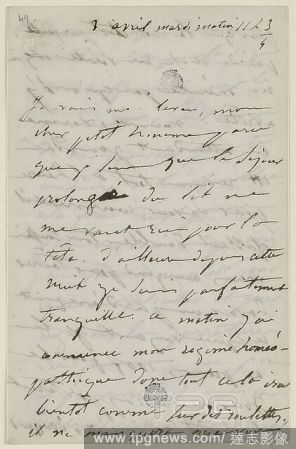 49
3 avril mardi matin 11h 3/4
Je vais me lever, mon
cher petit homme parce
que je sens que le séjour
prolongé du lit ne
me vaut rien pour la
tête. D'ailleurs depuis cette
nuit je suis parfaitement
tranquille. Ce matin j'ai
commencé mon régime homéo-
pathique donc tout cela ira
bientôt comme sur des roulettes,
il ne
www.tpgnews.com / 達志影像